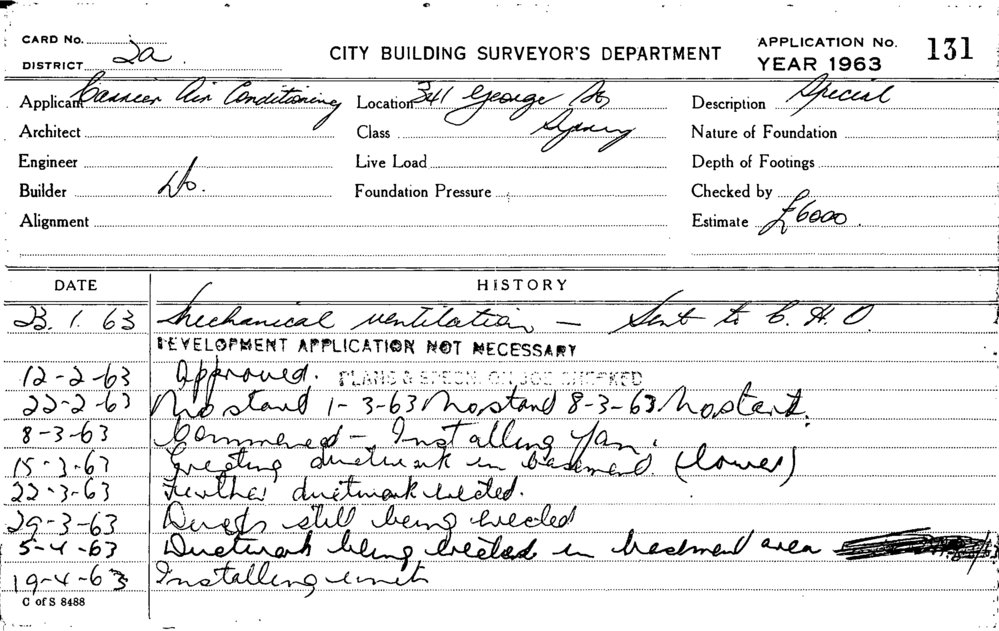 CARD No.
DISTRICT 2a
CITY BUILDING SURVEYOR'S DEPARTMENT
APPLICATION No. 131
YEAR 1963
Applicant Carrier Air Conditioning
Location 341 George St,
Description Special
Architect
Class Sydney
Nature of Foundation
Engineer
Live Load
Depth of Footings
Builder Do.
Foundation Pressure
Checked by
Alignment
Estimate £6000.
DATE HISTORY
23. 1. 63 Mechanical ventilation — Sent to C. H. O.
DEVELOPMENT APPLICATION NOT NECESSARY
12-2-63 Approved. PLANS & SPECN. ON JOB CHECKED
22-2-63 No start 1-3-63 No start 8-3-63 No start.
8-3-63 Commenced - Installing fan.
15-3-63 Erecting ductwork in basement (lower)
22-3-63 Further ductwork erected.
29-3-63 Ducts still being erected
5-4-63 Ductwork being erected in basement area
19-4-63 Installing unit
C of S 8488